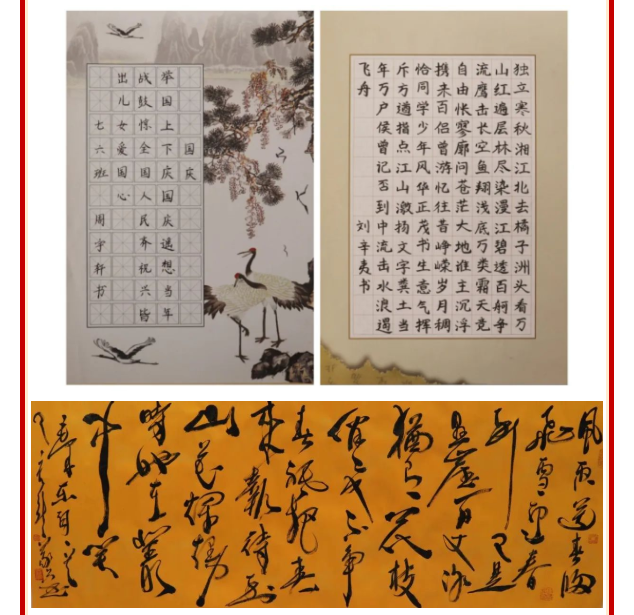 国庆
举国上下庆国庆遥想当年
战鼓惊全国人民齐祝兴皆
出儿女爱国心
七六班 周宇轩书
独立寒秋湘江北去橘子洲头看万
山红遍层林尽染漫江碧透百舸争
流鹰击长空鱼翔浅底万类霜天竞
自由怅寥廓问苍茫大地谁主沉浮
携来百侣曾游忆往昔峥嵘岁月稠
恰同学少年风华正茂书生意气挥
斥方遒指点江山激扬文字粪土当
年万户侯曾记否到中流击水浪遏
飞舟 刘辛夷书
风雨送春归
飞雪迎春
到已是
悬崖百丈冰
犹有花枝
俏俏也不争
春只把春
来报待到
山花烂熳
时她在丛
中笑